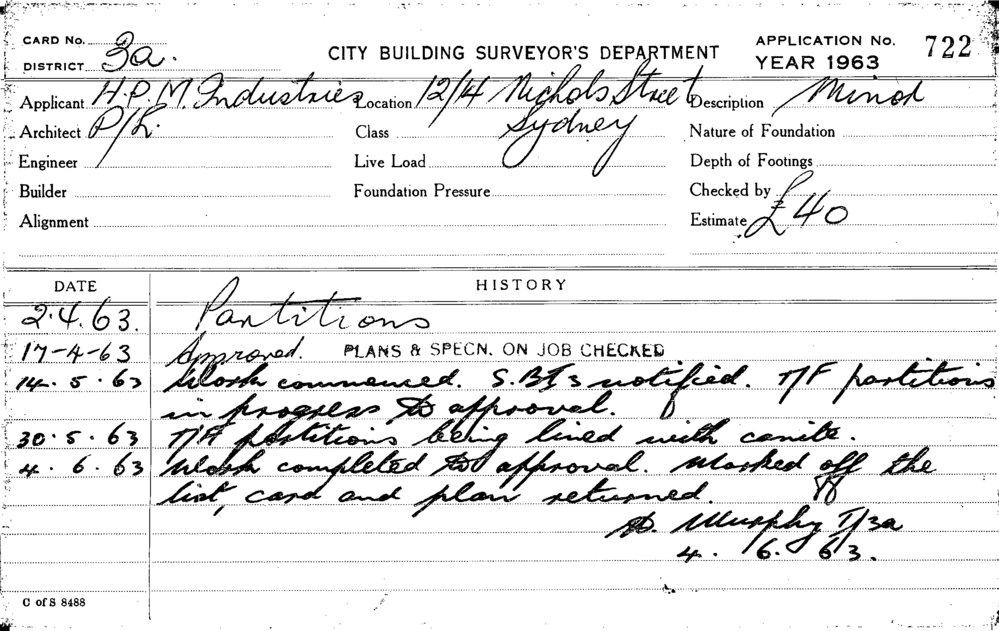 CARD No. 3a.
DISTRICT
CITY BUILDING SURVEYOR'S DEPARTMENT
APPLICATION No. 722
YEAR 1963
Applicant H.P.M. Industries Location 12/4 Nichols Street Description Minor
Architect P/L. Class Sydney Nature of Foundation
Engineer Live Load Depth of Footings
Builder Foundation Pressure Checked by
Alignment Estimate £40
DATE HISTORY
2.4.63. Partitions
17-4-63 Approved. PLANS & SPECN. ON JOB CHECKED
14.5.63 Work commenced. S.B.I's notified. T/F partitions
in progress to approval.
30.5.63 T/F partitions being lined with canite.
4.6.63 Work completed to approval. Marked off the
list, card and plan returned.
Murphy T/3a
4.6.63.
C of S 8488